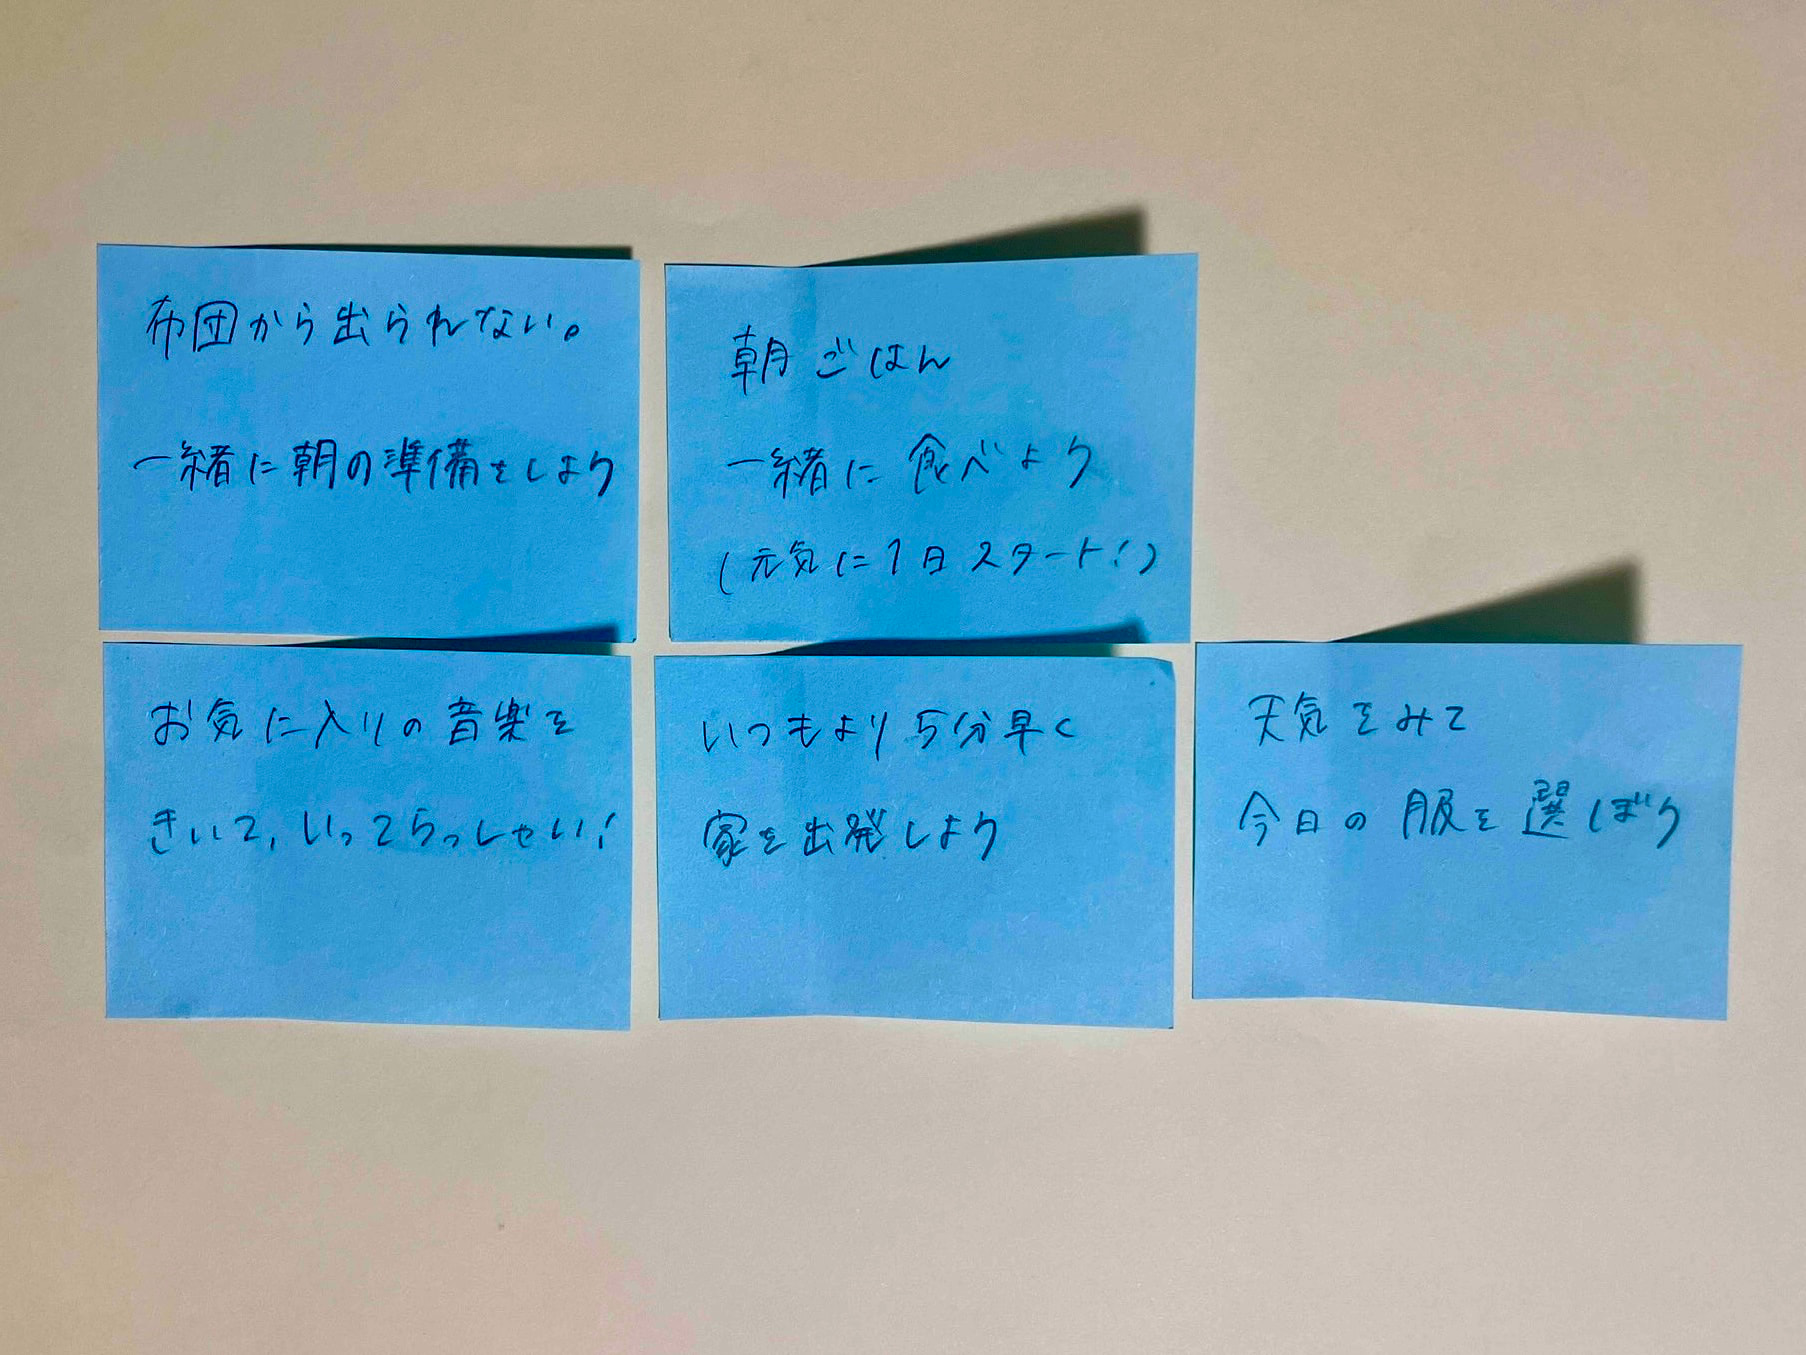 布団から出られない。
一緒に朝の準備をしよう
朝ごはん
一緒に食べよう
(元気に1日スタート!)
お気に入りの音楽を
きいて、いってらっしゃい!
いつもより5分早く
家を出発しよう
天気をみて
今日の服を選ぼう